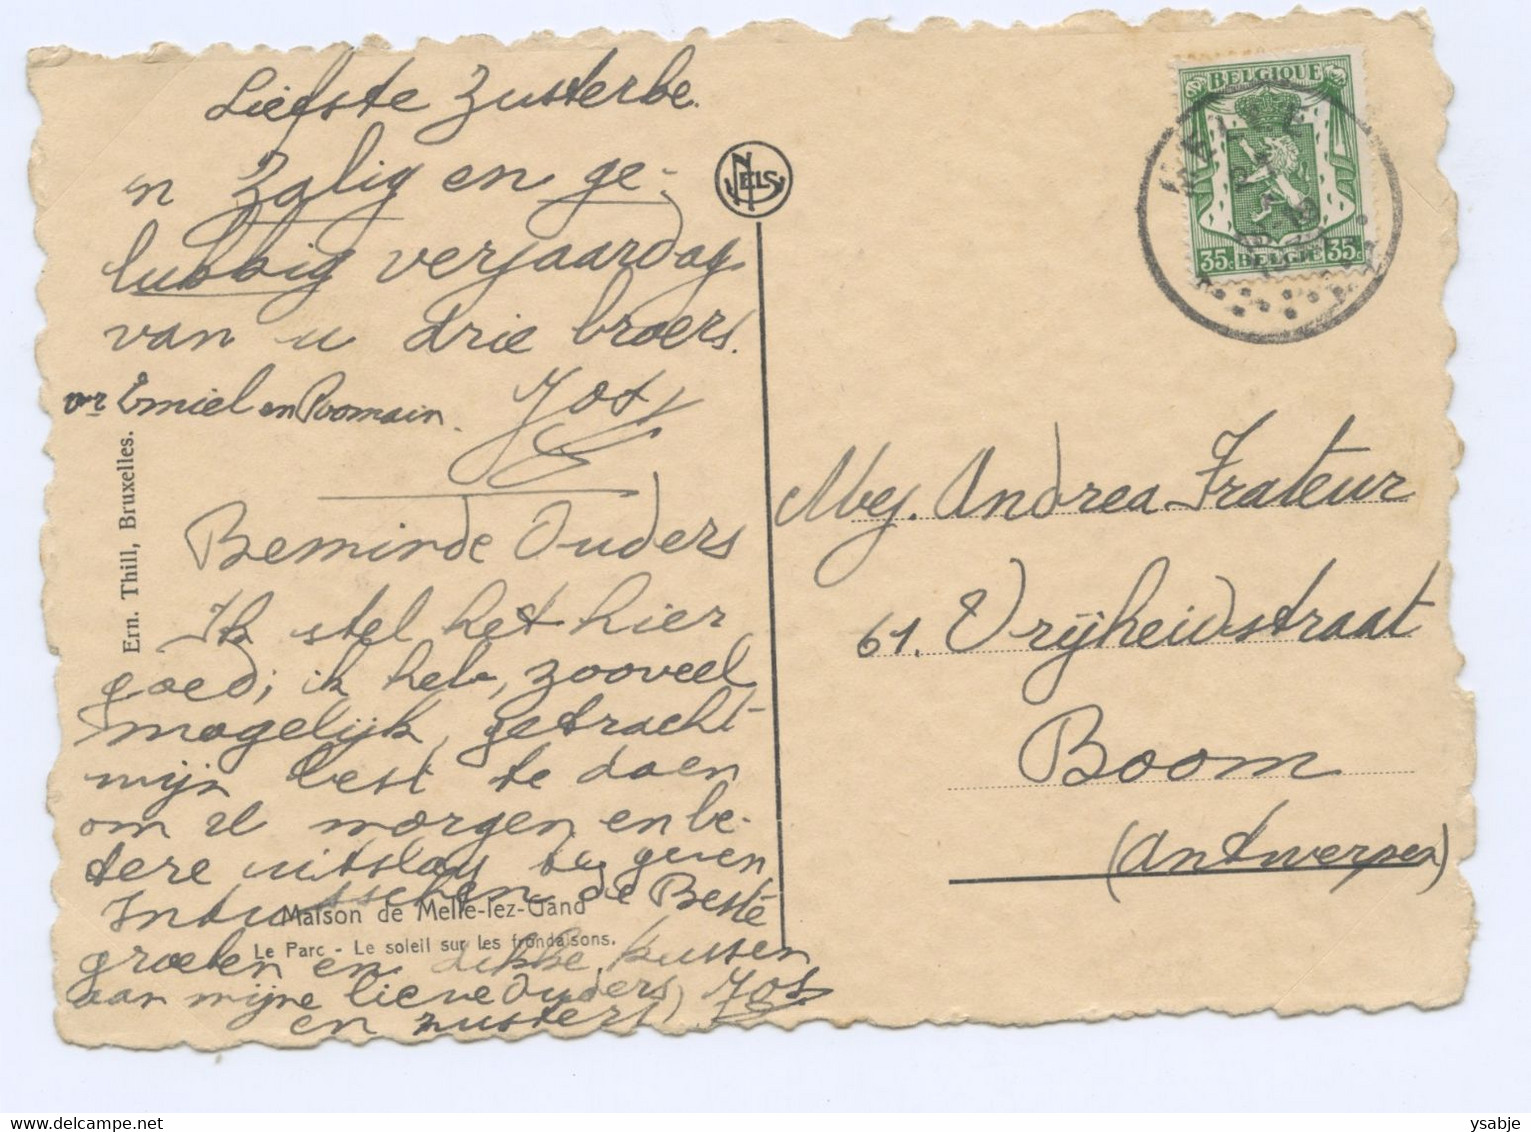 Liefste Zusterke.
'n Zalig en ge-
lukkig verjaardag
van u drie broers.
Emiel en Romain.
Jos
Beminde Ouders
Ik stel het hier
goed; ik heb, zooveel
mogelijk, getracht
mijn best te doen
om U morgen, en be-
tere uitslag te geven
Intusschen de Beste
groeten en dikke kussen
aan mijne lieve Ouders, Jos
en zusters
Ern. Thill, Bruxelles.
Maison de Melle-lez-Gand
Le Parc - Le soleil sur les frondaisons.
NELS
BELGIQUE
35c BELGIE 35c
MELLE
Mej. Andrea Frateur
61. Vrijheidstraat
Boom
(Antwerpen)
ysabje